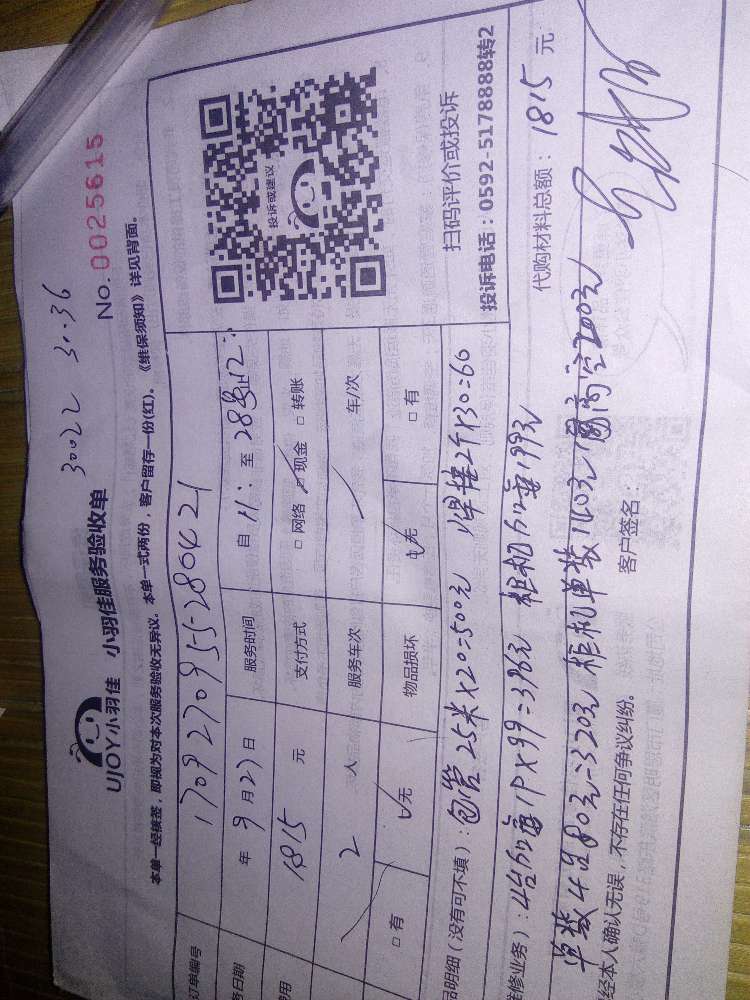 30022 30036
UJOY小羽佳 小羽佳服务验收单
No.0025615
本单一经核签，即视为对本次服务验收无异议。本单一式两份，客户留存一份(红)。《维保须知》详见背面。
订单编号 170927095528042 1
务日期 年 9 月 27 日 服务时间 自 11: 至 28号止12:
费用 1815 元 支付方式 □ 网络 □ 现金 □ 转账
2 人 服务车次 车/次
□ 有 无 物品损坏 无 □ 有
投诉或建议
扫码评价或投诉
投诉电话：0592-5178888转2
品明细（没有可不填）：包管25米×20=500元 焊接2个×30=60
代购材料总额：1815 元
维修业务）：4台加 1P×99=396元 柜机加 199元
单装4台80元=320元 柜机单装140元 高空200元
经本人确认无误，不存在任何争议纠纷。 客户签名：